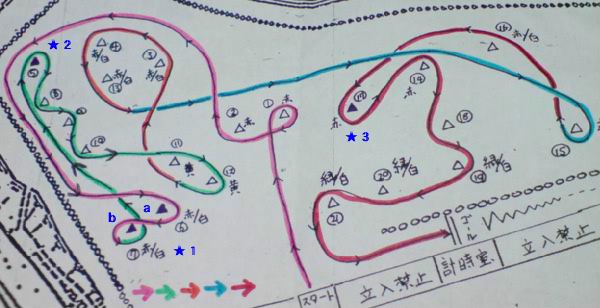 ★2
④
赤/白
③
赤/白
赤/白
⑬
⑯
赤/白
⑧
⑨
②
赤
①
赤
⑰
赤
★3
⑭
⑱
⑮
⑩
⑪
黄
⑫
黄
⑲
緑/白
⑳
緑/白
緑/白
㉑
a
b
⑥
赤/白
⑦
赤/白
★1
ゴール
スタート
立入禁止
計時室
立入禁止